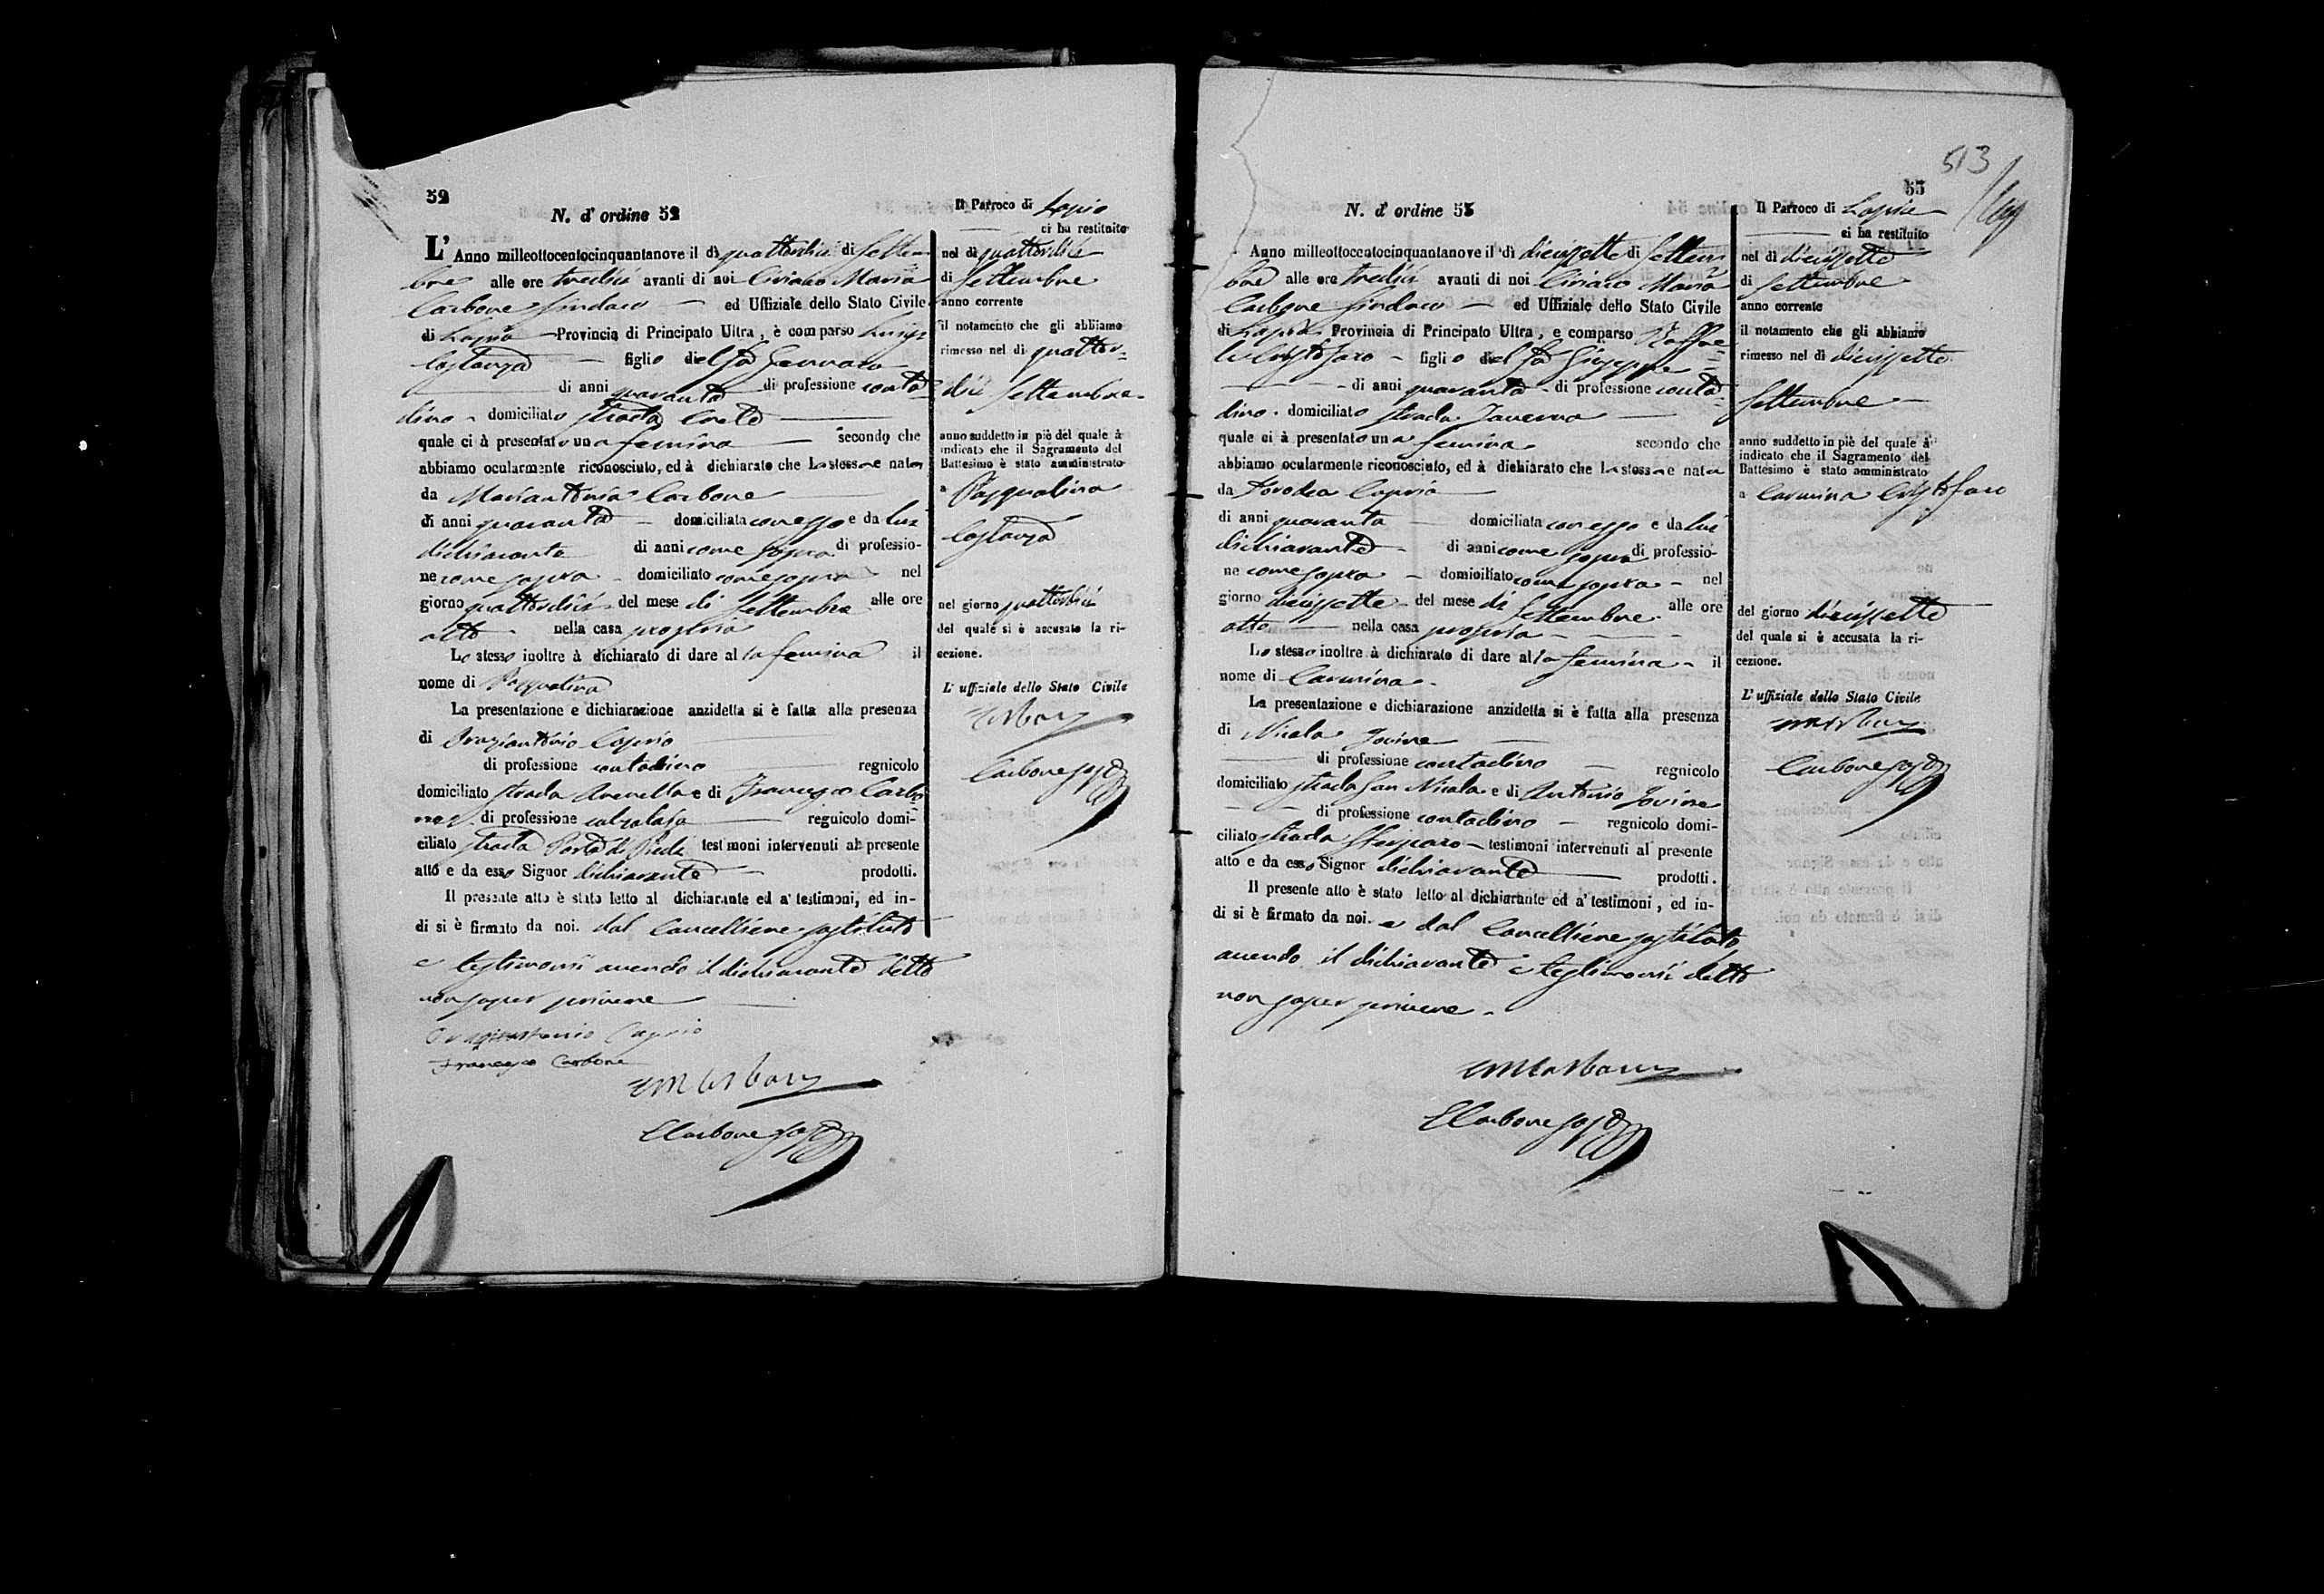 52
N. d' ordine 52
L' Anno millecottocentocinquantanove il dì quattordici di Settem
bre alle ore tredici avanti di noi Ciriaco Maria
Carbone Sindaco ed Uffiziale dello Stato Civile
di Lapio Provincia di Principato Ultra, è comparso Luigi
Costanza figlio del fù Gennaro
di anni quaranta di professione conta
dino domiciliato strada
quale ci à presentato una femina secondo che
abbiamo ocularmente riconosciuto, ed à dichiarato che la stessa e nata
da Mariantonia Carbone
di anni quaranta domiciliata con esso e da lui
dichiarante di anni come sopra di professio-
ne come sopra domiciliato come sopra nel
giorno quattordici del mese di Settembre alle ore
otto nella casa propria
Lo stesso inoltre à dichiarato di dare al la femina il
nome di Pasqualina
La presentazione e dichiarazione anzidetta si è fatta alla presenza
di Oraziantonio Caprio
di professione contadino regnicolo
domiciliato strada e di Francesco Carbo
ne di professione calzolajo regnicolo domi-
ciliato strada Porta di testimoni intervenuti al presente
atto e da esso Signor dichiarante prodotti.
Il presente atto è stato letto al dichiarante ed a' testimoni, ed in-
di si è firmato da noi. dal Cancelliere sostituto
e testimonii avendo il dichiarante detto
non saper scrivere
Oraziantonio Caprio
Francesco Carbone
CMCarbone
Carbone sost
Il Parroco di Lapio
ci ha restituito
nel dì quattordici
di Settembre
anno corrente
il notamento che gli abbiamo
rimesso nel dì quattor=
dici Settembre
anno suddetto in piè del quale à
indicato che il Sagramento del
Battesimo è stato amministrato
a Pasqualina
Costanza
nel giorno quattordici
del quale si è accusato la ri-
cezione.
L' uffiziale dello Stato Civile
CMCarbone
Carbone sost
513
53
N. d' ordine 53
Anno millecottocentocinquantanove il dì diecissette di Settem
bre alle ore tredici avanti di noi Ciriaco Maria
Carbone Sindaco ed Uffiziale dello Stato Civile
di Lapio Provincia di Principato Ultra, e comparso Raffae
le Cristofaro figlio del fù Giuseppe
di anni quaranta di professione conta
dino domiciliato strada Taverna
quale ci à presentato una femina secondo che
abbiamo ocularmente riconosciuto, ed à dichiarato che la stessa e nata
da Dorodea Caprio
di anni quaranta domiciliata con esso e da lui
dichiarante di anni come sopra di professio-
ne come sopra domiciliato come sopra nel
giorno diecissette del mese di Settembre alle ore
otto nella casa propria
Lo stesso inoltre à dichiarato di dare al la femina il
nome di Carmina
La presentazione e dichiarazione anzidetta si è fatta alla presenza
di Nicola Jovine
di professione contadino regnicolo
domiciliato strada San Nicola e di Antonio Jovine
di professione contadino regnicolo domi-
ciliato strada testimoni intervenuti al presente
atto e da esso Signor dichiarante prodotti.
Il presente atto è stato letto al dichiarante ed a' testimoni, ed in-
di si è firmato da noi. e dal Cancelliere sostituto
avendo il dichiarante e testimonii detto
non saper scrivere
CMCarbone
Carbone sost
Il Parroco di Lapio
ci ha restituito
nel dì diecissette
di Settembre
anno corrente
il notamento che gli abbiamo
rimesso nel dì diecissette
Settembre
anno suddetto in piè del quale à
indicato che il Sagramento del
Battesimo è stato amministrato
a Carmina Cristofaro
del giorno diecissette
del quale si è accusata la ri-
cezione.
L' uffiziale dello Stato Civile
CMCarbone
Carbone sost